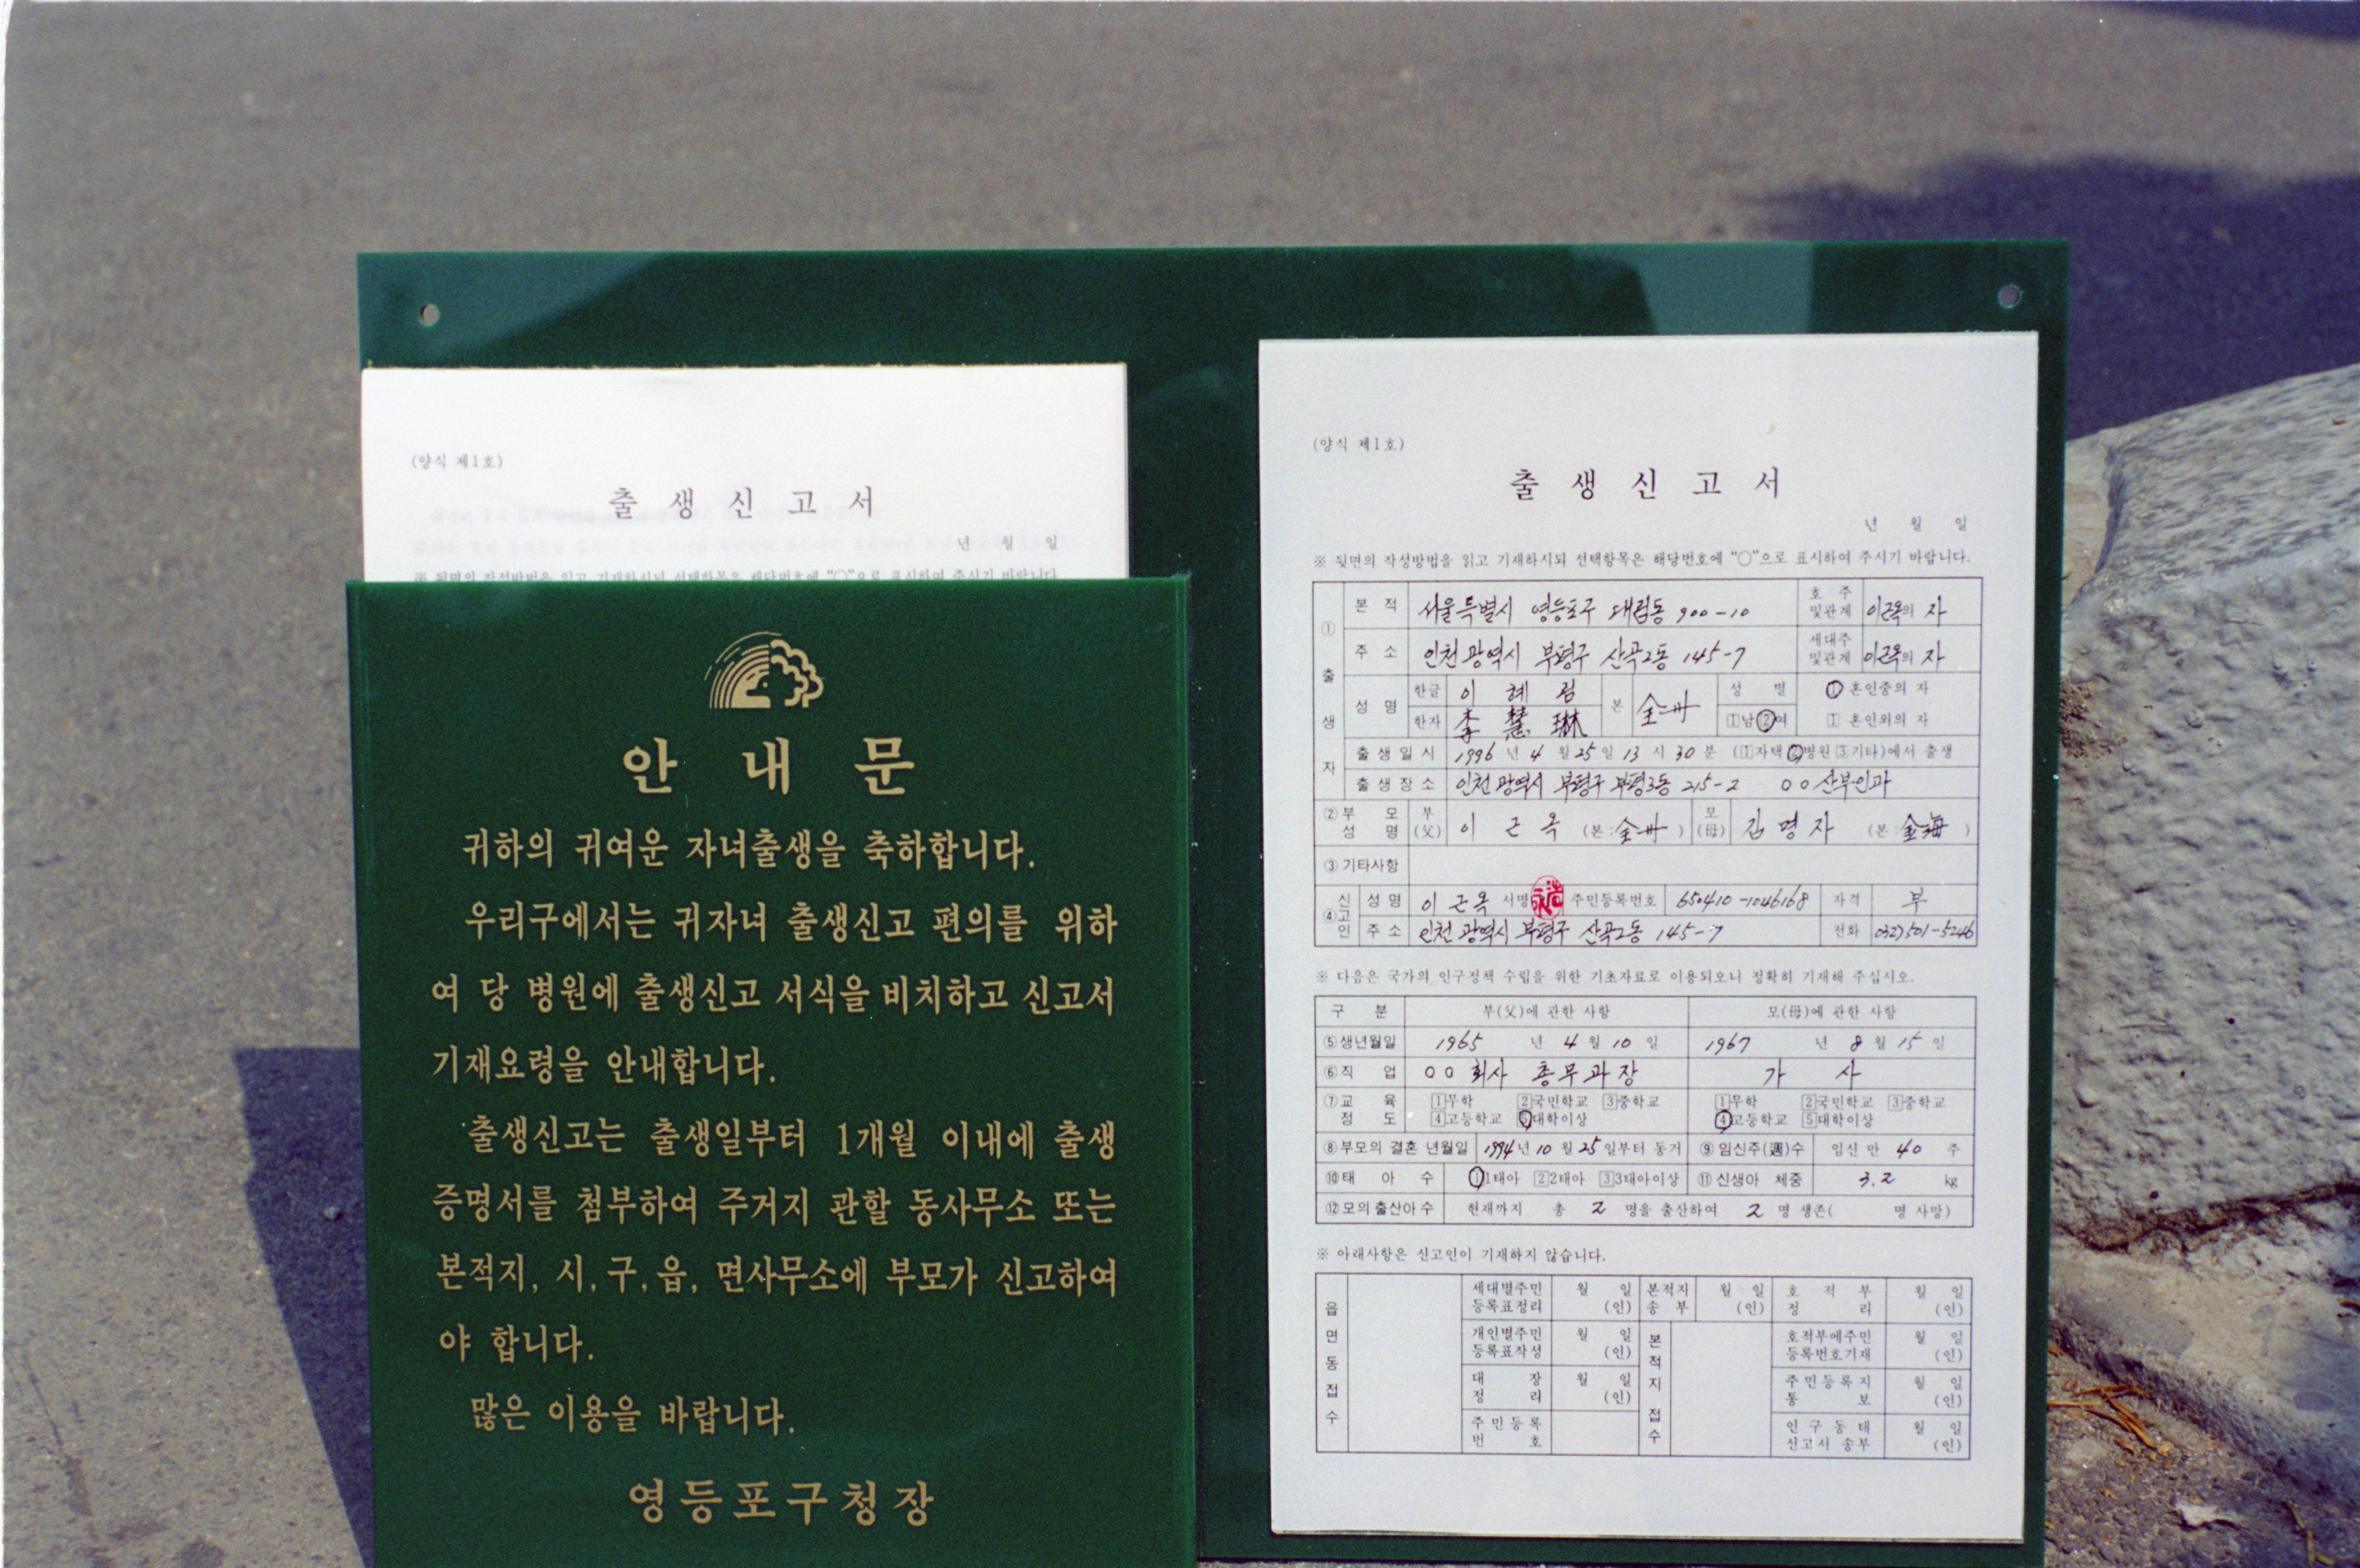 (양식 제1호)
출 생 신 고 서
년 월 일
※ 뒷면의 작성방법을 읽고 기재하시되 선택항목은 해당번호에 "○"으로 표시하여 주시기 바랍니다.
안 내 문
귀하의 귀여운 자녀출생을 축하합니다.
우리구에서는 귀자녀 출생신고 편의를 위하
여 당 병원에 출생신고 서식을 비치하고 신고서
기재요령을 안내합니다.
출생신고는 출생일부터 1개월 이내에 출생
증명서를 첨부하여 주거지 관할 동사무소 또는
본적지, 시, 구, 읍, 면사무소에 부모가 신고하여
야 합니다.
많은 이용을 바랍니다.
영등포구청장
(양식 제1호)
출 생 신 고 서
년 월 일
※ 뒷면의 작성방법을 읽고 기재하시되 선택항목은 해당번호에 "○"으로 표시하여 주시기 바랍니다.
① 출생자
본 적 서울특별시 영등포구 대림동 900-10 호주 및관계 이근옥의 자
주 소 인천광역시 부평구 산곡2동 145-7 세대주 및관계 이근옥의 자
성 명 한글 이 혜 림 본 全州 성 별 ① 혼인중의 자
한자 李 慧 琳 1남 ②여 1 혼인외의 자
출생일시 1996 년 4 월 25 일 13 시 30 분 (1자택 ②병원 3기타)에서 출생
출생장소 인천광역시 부평구 부평3동 215-2 ○○산부인과
② 부모 성명 부(父) 이 근 옥 (본:全州) 모(母) 김 명 자 (본:金海)
③ 기타사항
④ 신고인 성명 이 근 옥 서명 주민등록번호 650410-1046168 자격 부
주 소 인천광역시 부평구 산곡2동 145-7 전화 032)501-5246
※ 다음은 국가의 인구정책 수립을 위한 기초자료로 이용되오니 정확히 기재해 주십시오.
구 분 부(父)에 관한 사항 모(母)에 관한 사항
⑤ 생년월일 1965 년 4 월 10 일 1967 년 8 월 15 일
⑥ 직 업 ○○ 회사 총무과장 가 사
⑦ 교육정도 1무학 2국민학교 3중학교 1무학 2국민학교 3중학교
4고등학교 ⑤대학이상 ④고등학교 5대학이상
⑧ 부모의 결혼 년월일 1994 년 10 월 25 일부터 동거 ⑨ 임신주(週)수 임신 만 40 주
⑩ 태 아 수 ①1태아 2 2태아 3 3태아이상 ⑪ 신생아 체중 3.2 kg
⑫ 모의 출산아 수 현재까지 총 2 명을 출산하여 2 명 생존( 명 사망)
※ 아래사항은 신고인이 기재하지 않습니다.
읍면동접수 세대별주민등록표정리 월 일 (인) 본적지송부 월 일 (인) 호적부정리 월 일 (인)
개인별주민등록표작성 월 일 (인) 본적지접수 호적부에주민등록번호기재 월 일 (인)
대장정리 월 일 (인) 주민등록지통보 월 일 (인)
주민등록번호 인구동태신고서 송부 월 일 (인)